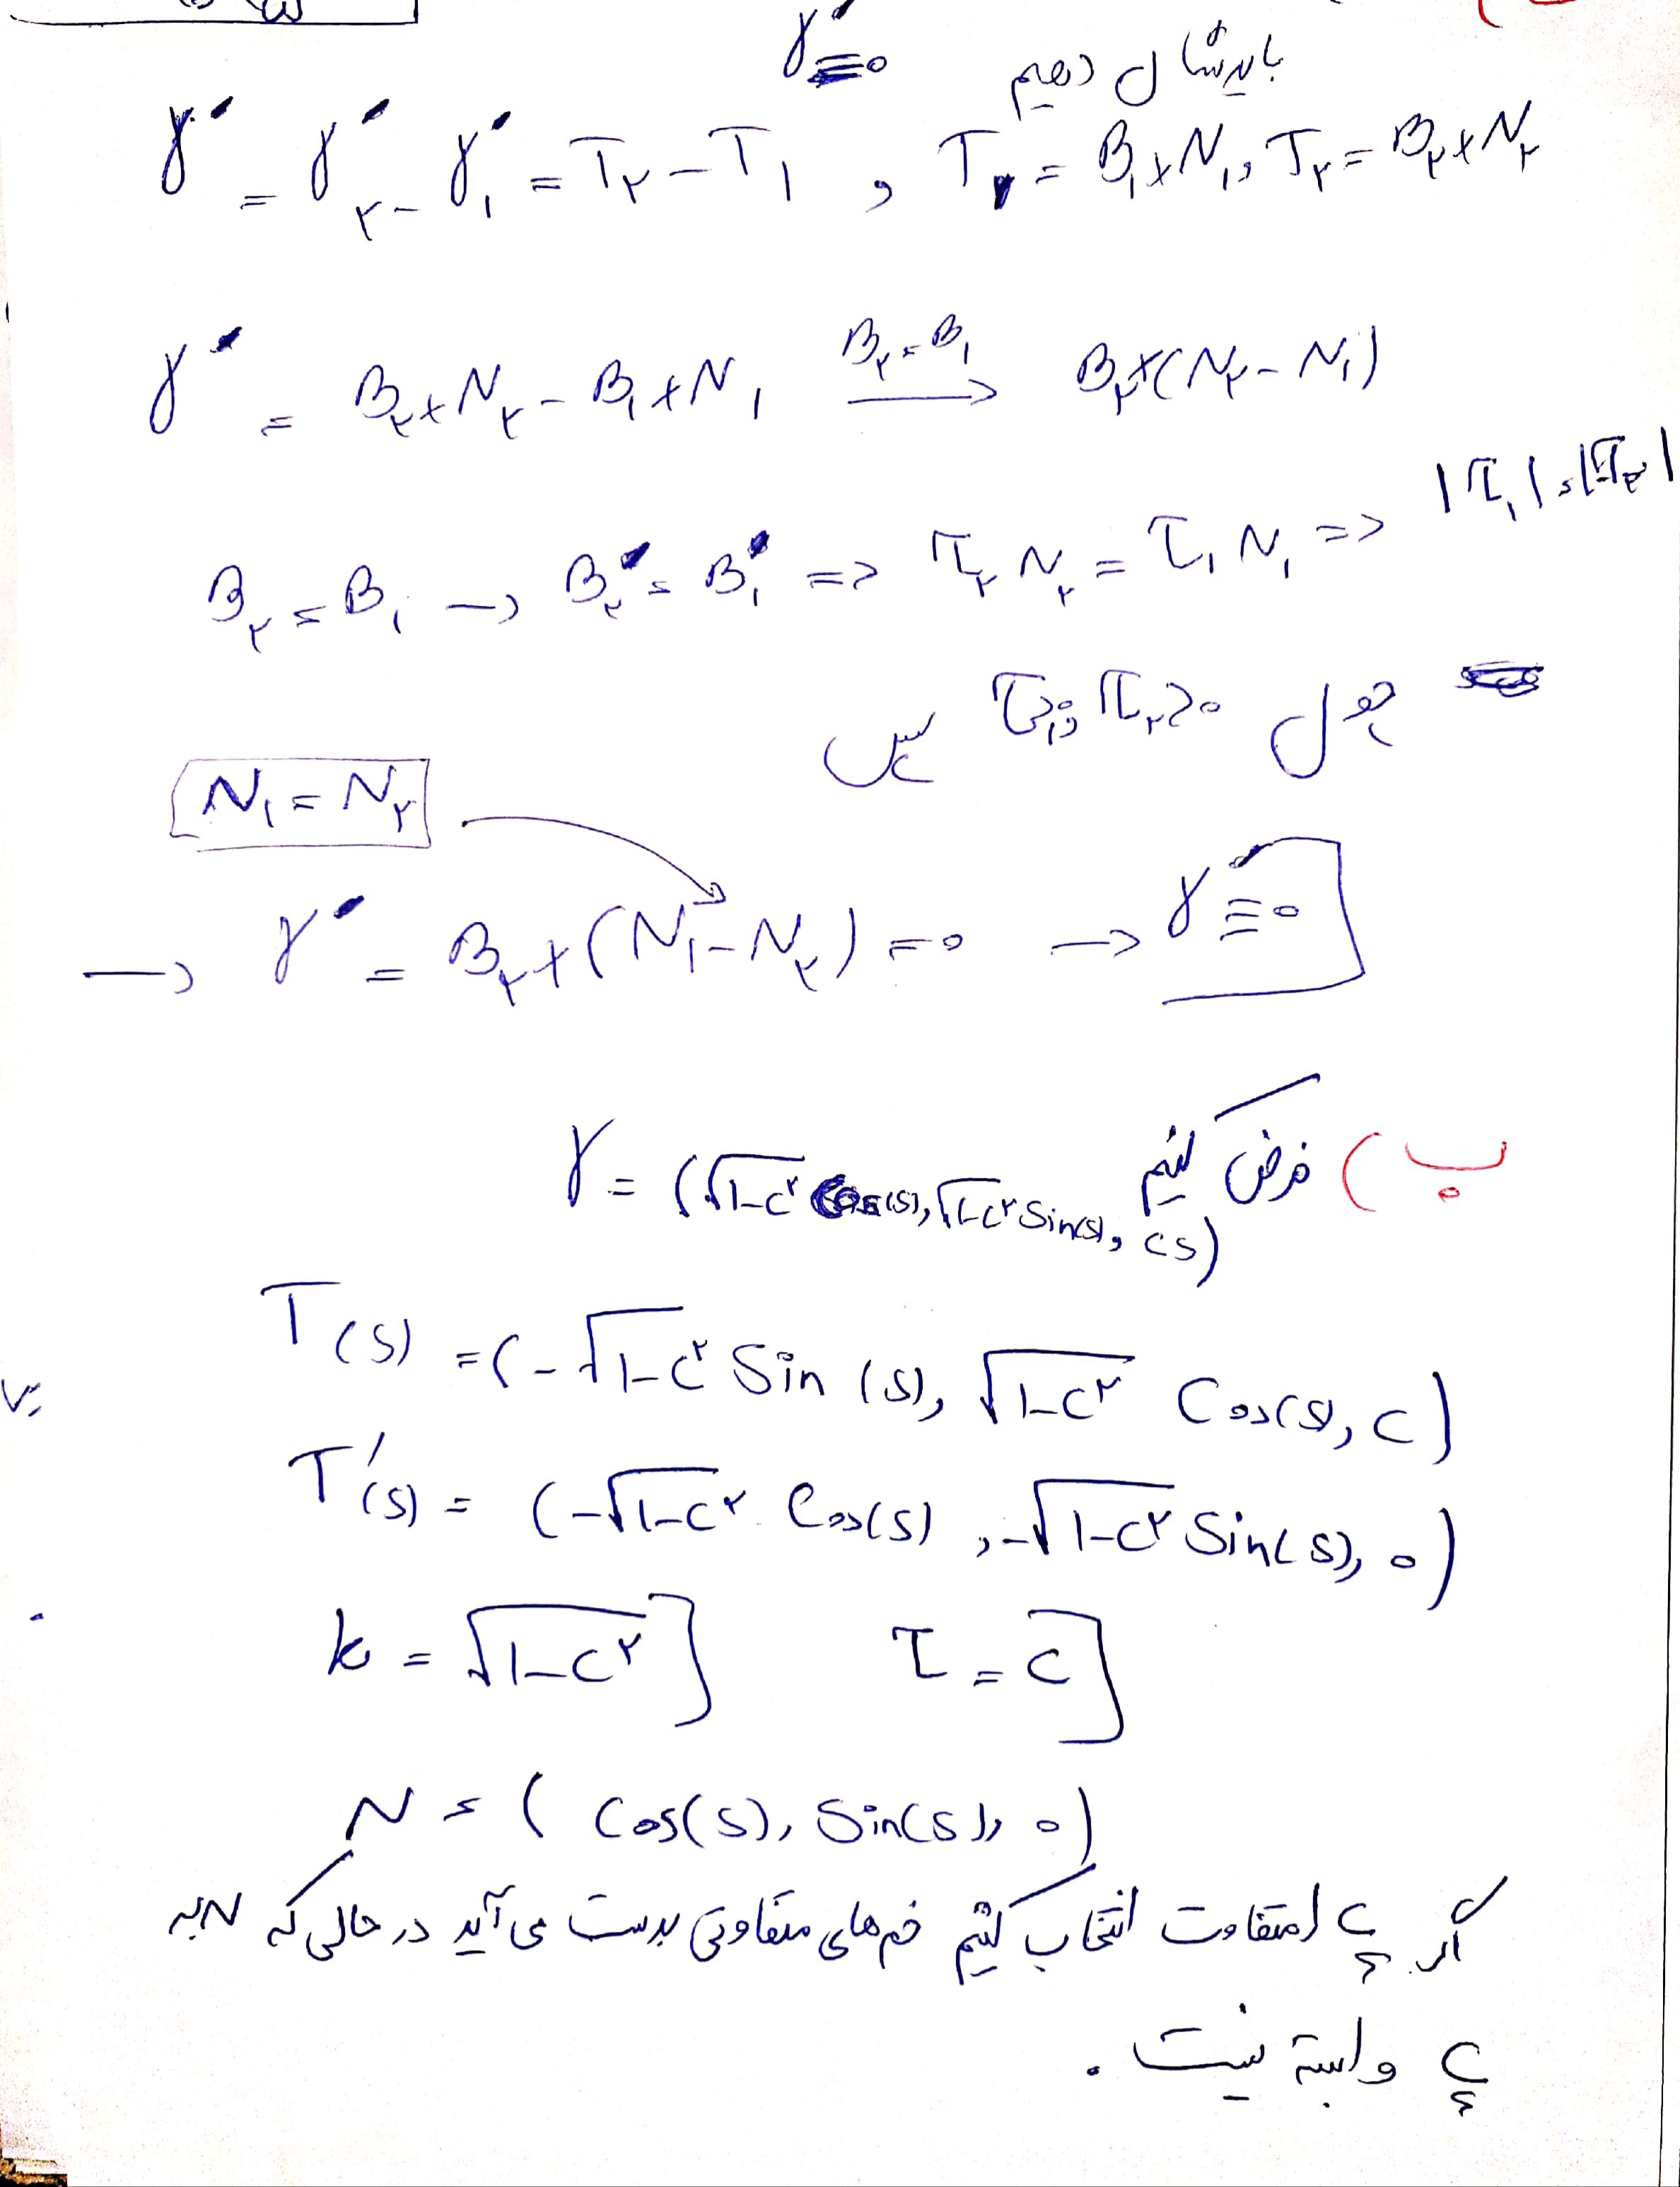 باید نشان دهیم γ' ≡ 0
γ' = γ'۲ - γ'۱ = T۲ - T۱ , T۱ = B۱ × N۱ , T۲ = B۲ × N۲
γ' = B۲ × N۲ - B۱ × N۱ \xrightarrow{B۲ = B۱} B۲ × (N۲ - N۱)
B۲ = B۱ → B'۲ = B'۱ => τ۲ N۲ = τ۱ N۱ => |τ۱| = |τ۲|
چون τ۱ و τ۲ > 0 پس
N۱ = N۲
→ γ' = B۲ × (N۱ - N۲) = 0 → γ' ≡ 0
ب) فرض کنیم γ = (√(1-c²) cos(s), √(1-c²) sin(s), cs)
T(s) = (-√(1-c²) Sin(s), √(1-c²) Cos(s), c)
T'(s) = (-√(1-c²) Cos(s), -√(1-c²) Sin(s), 0)
k = √(1-c²) τ = c
N = (Cos(s), Sin(s), 0)
اگر c های متفاوت انتخاب کنیم خم‌های متفاوتی بدست می‌آید در حالی که N به
c وابسته نیست .